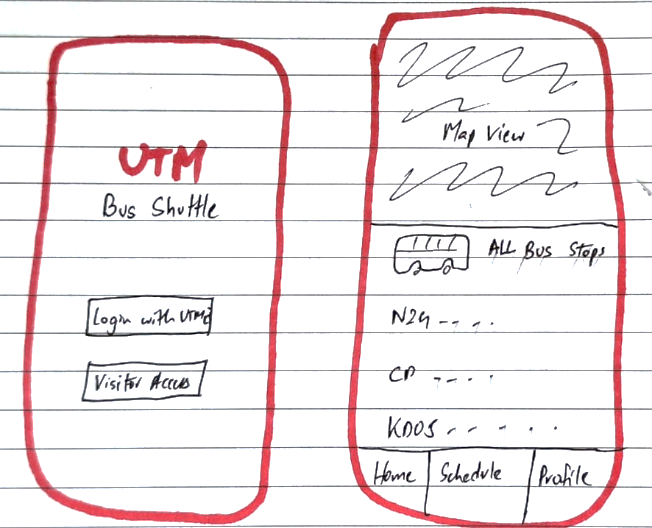 UTM
Bus Shuttle
Login with UTMID
Visitor Access
Map View
ALL Bus Stops
N24 -----
CP -----
KDOS ------
Home Schedule Profile